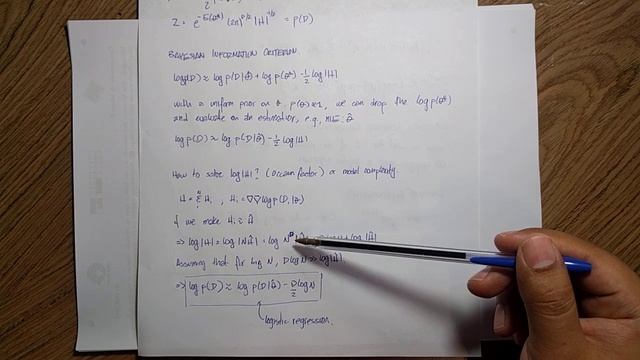 Z = e^{-E(θ*)} (2π)^{D/2} |H|^{-1/2} = p(D)
BAYESIAN INFORMATION CRITERION
log p(D) ≈ log p(D|θ̂) + log p(θ*) - 1/2 log|H|
with a uniform prior on θ, p(θ)∝1, we can drop the log p(θ*)
and evaluate on an estimation, e.g., MLE: θ̂
log p(D) ≈ log p(D|θ̂) - 1/2 log|H|
How to solve log|H|? (Occam factor) or model complexity.
H = Σ^N_i H_i , H_i = ∇∇ log p(D_i|θ)
if we make H_i ≈ Ĥ
⇒ log|H| = log|NĤ| = log N^D log|Ĥ|
Assuming that for big N, D log N >> log|Ĥ|
⇒ log p(D) ≈ log p(D|θ̂) - D/2 log N
logistic regression.